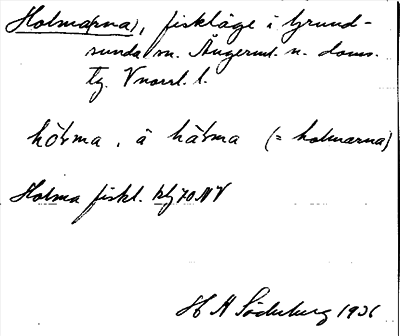 Holma(rna), fiskläge i Grund-
sunda sn. Ångerml. n. doms.
tg. Vnorrl. l.
hòrma, å hàrma (= holmarna)
Holma fiskl. blj 70 NV
H A Söderberg 1936